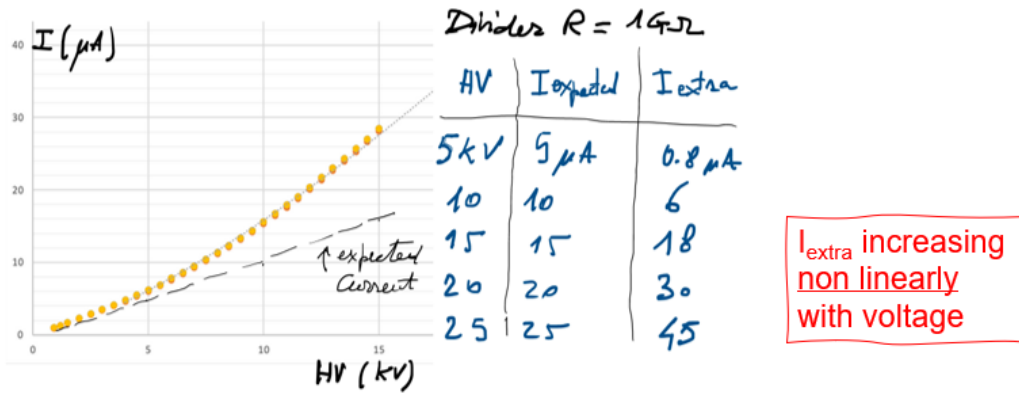 I (μA)
40
30
20
10
0
0
5
10
15
HV (kV)
↑ expected
current
Divider R = 1GΩ
HV I expected I extra
5kV 5 μA 0.8 μA
10 10 6
15 15 18
20 20 30
25 25 45
I extra increasing
non linearly
with voltage